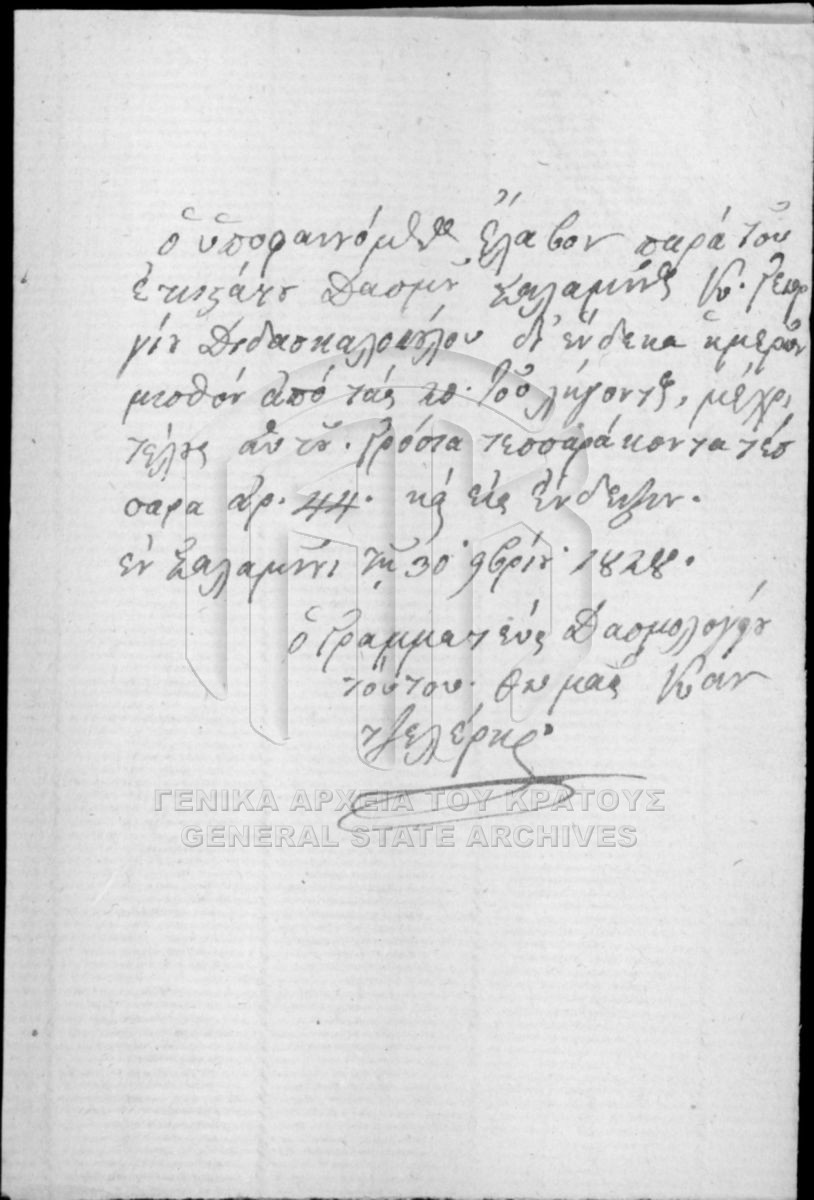 ὁ ὑποφαινόμενος ἔλαβον παρὰ τοῦ
ἐπιστάτου Δασμοῦ Σαλαμῖνος Κυ. Γεωρ
γίου Διδασκαλοπούλου δι' ἕνδεκα ἡμερῶν
μισθόν ἀπό τάς 20. τοῦ λήγοντος, μέχρι
τέλους αὐτοῦ. Γρόσια τεσσαράκοντα τέσ
σαρα ἀρ. 44. καὶ εἰς ἔνδειξιν.
ἐν Σαλαμῖνι τῇ 30 9βρίου 1828.
ὁ Γραμματεύς Δασμολογείου
τούτου. Θωμᾶς Καν
τζελέρης
ΓΕΝΙΚΑ ΑΡΧΕΙΑ ΤΟΥ ΚΡΑΤΟΥΣ
GENERAL STATE ARCHIVES